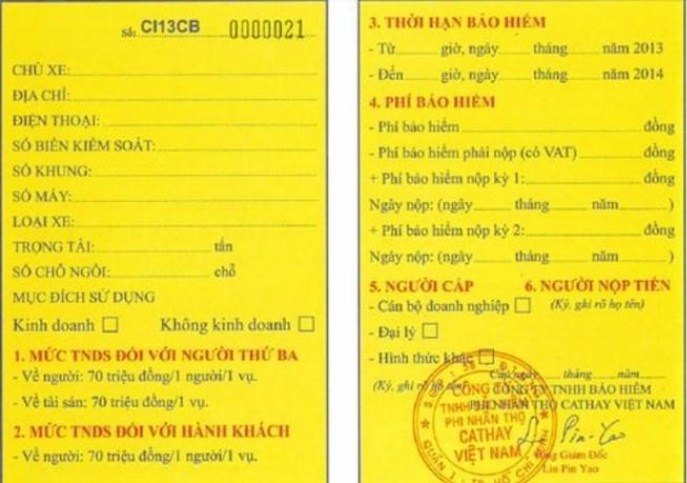 Số: CI13CB 0000021
CHỦ XE:
ĐỊA CHỈ:
ĐIỆN THOẠI:
SỐ BIỂN KIỂM SOÁT:
SỐ KHUNG:
SỐ MÁY:
LOẠI XE:
TRỌNG TẢI: tấn
SỐ CHỖ NGỒI: chỗ
MỤC ĐÍCH SỬ DỤNG
Kinh doanh □ Không kinh doanh □
1. MỨC TNDS ĐỐI VỚI NGƯỜI THỨ BA
- Về người: 70 triệu đồng/1 người/1 vụ.
- Về tài sản: 70 triệu đồng/1 vụ.
2. MỨC TNDS ĐỐI VỚI HÀNH KHÁCH
- Về người: 70 triệu đồng/1 người/1 vụ.
3. THỜI HẠN BẢO HIỂM
- Từ giờ, ngày tháng năm 2013
- Đến giờ, ngày tháng năm 2014
4. PHÍ BẢO HIỂM
- Phí bảo hiểm đồng
- Phí bảo hiểm phải nộp (có VAT) đồng
+ Phí bảo hiểm nộp kỳ 1: đồng
Ngày nộp: (ngày tháng năm )
+ Phí bảo hiểm nộp kỳ 2: đồng
Ngày nộp: (ngày tháng năm )
5. NGƯỜI CẤP 6. NGƯỜI NỘP TIỀN
- Cán bộ doanh nghiệp □ (Ký, ghi rõ họ tên)
- Đại lý □
- Hình thức khác □
Cấp ngày tháng năm
(Ký, ghi rõ họ tên) CÔNG TY TNHH BẢO HIỂM
PHI NHÂN THỌ CATHAY VIỆT NAM
CÔNG TY
TNHH BẢO HIỂM
PHI NHÂN THỌ
CATHAY
VIỆT NAM
QUẬN 1 - TP. HỒ CHÍ MINH
Lin Pin-Yao
Tổng Giám Đốc
Lin Pin Yao